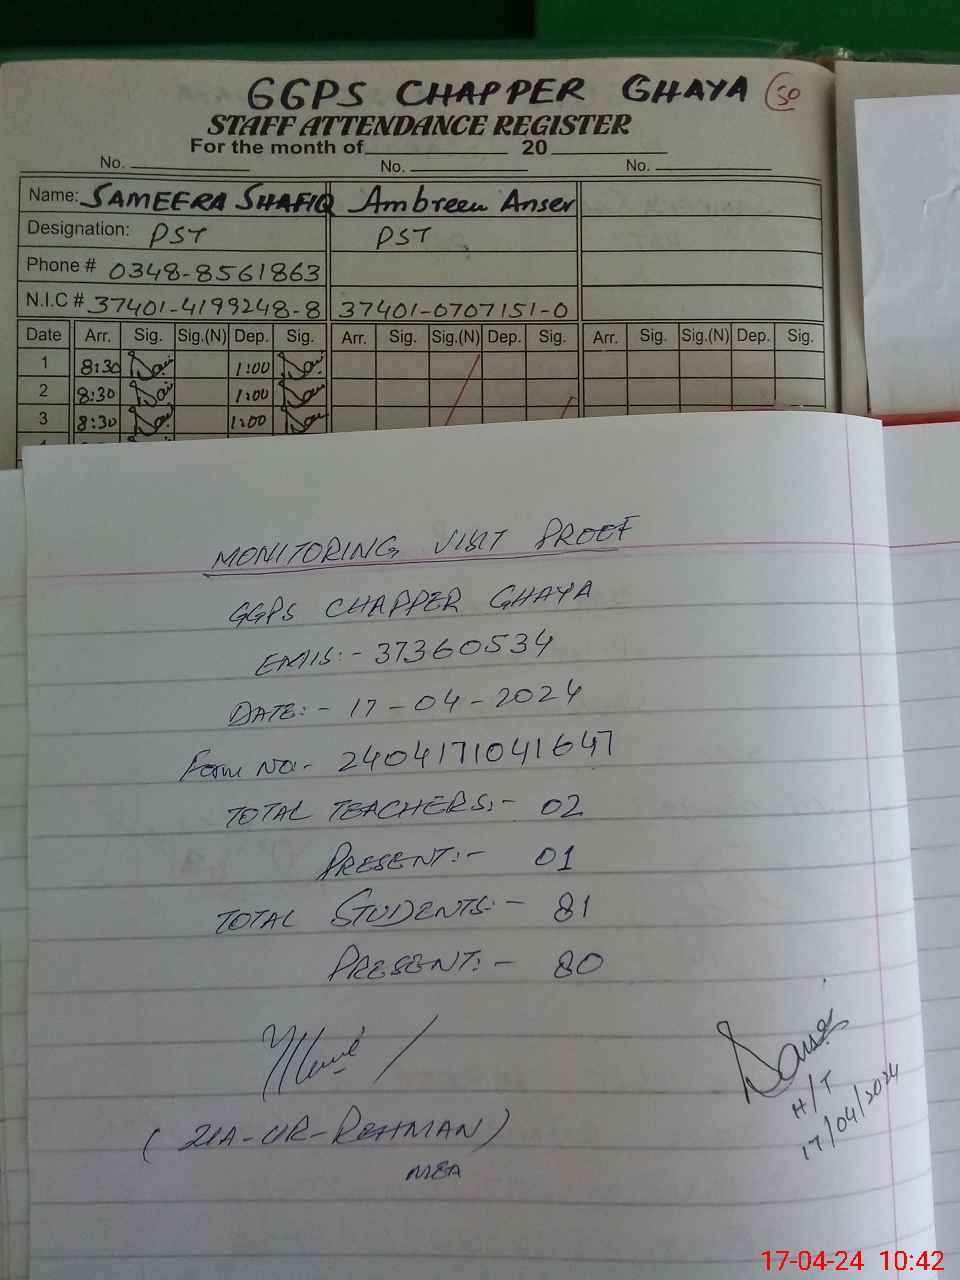 GGPS CHAPPER GHAYA 50
STAFF ATTENDANCE REGISTER
For the month of 20
No. No. No.
Name: SAMEERA SHAFIQ Ambreen Anser
Designation: PST PST
Phone # 0348-8561863
N.I.C # 37401-4199248-8 37401-0707151-0
Date Arr. Sig. Sig.(N) Dep. Sig. Arr. Sig. Sig.(N) Dep. Sig. Arr. Sig. Sig.(N) Dep. Sig.
1 8:30 1:00
2 8:30 1:00
3 8:30 1:00
MONITORING VISIT PROOF
GGPS CHAPPER GHAYA
EMIS:- 37360534
DATE:- 17-04-2024
Form No:- 2404171041647
TOTAL TEACHERS:- 02
PRESENT:- 01
TOTAL STUDENTS:- 81
PRESENT:- 80
H/T
17/04/2024
(ZIA-UR-REHMAN)
MEA
17-04-24 10:42